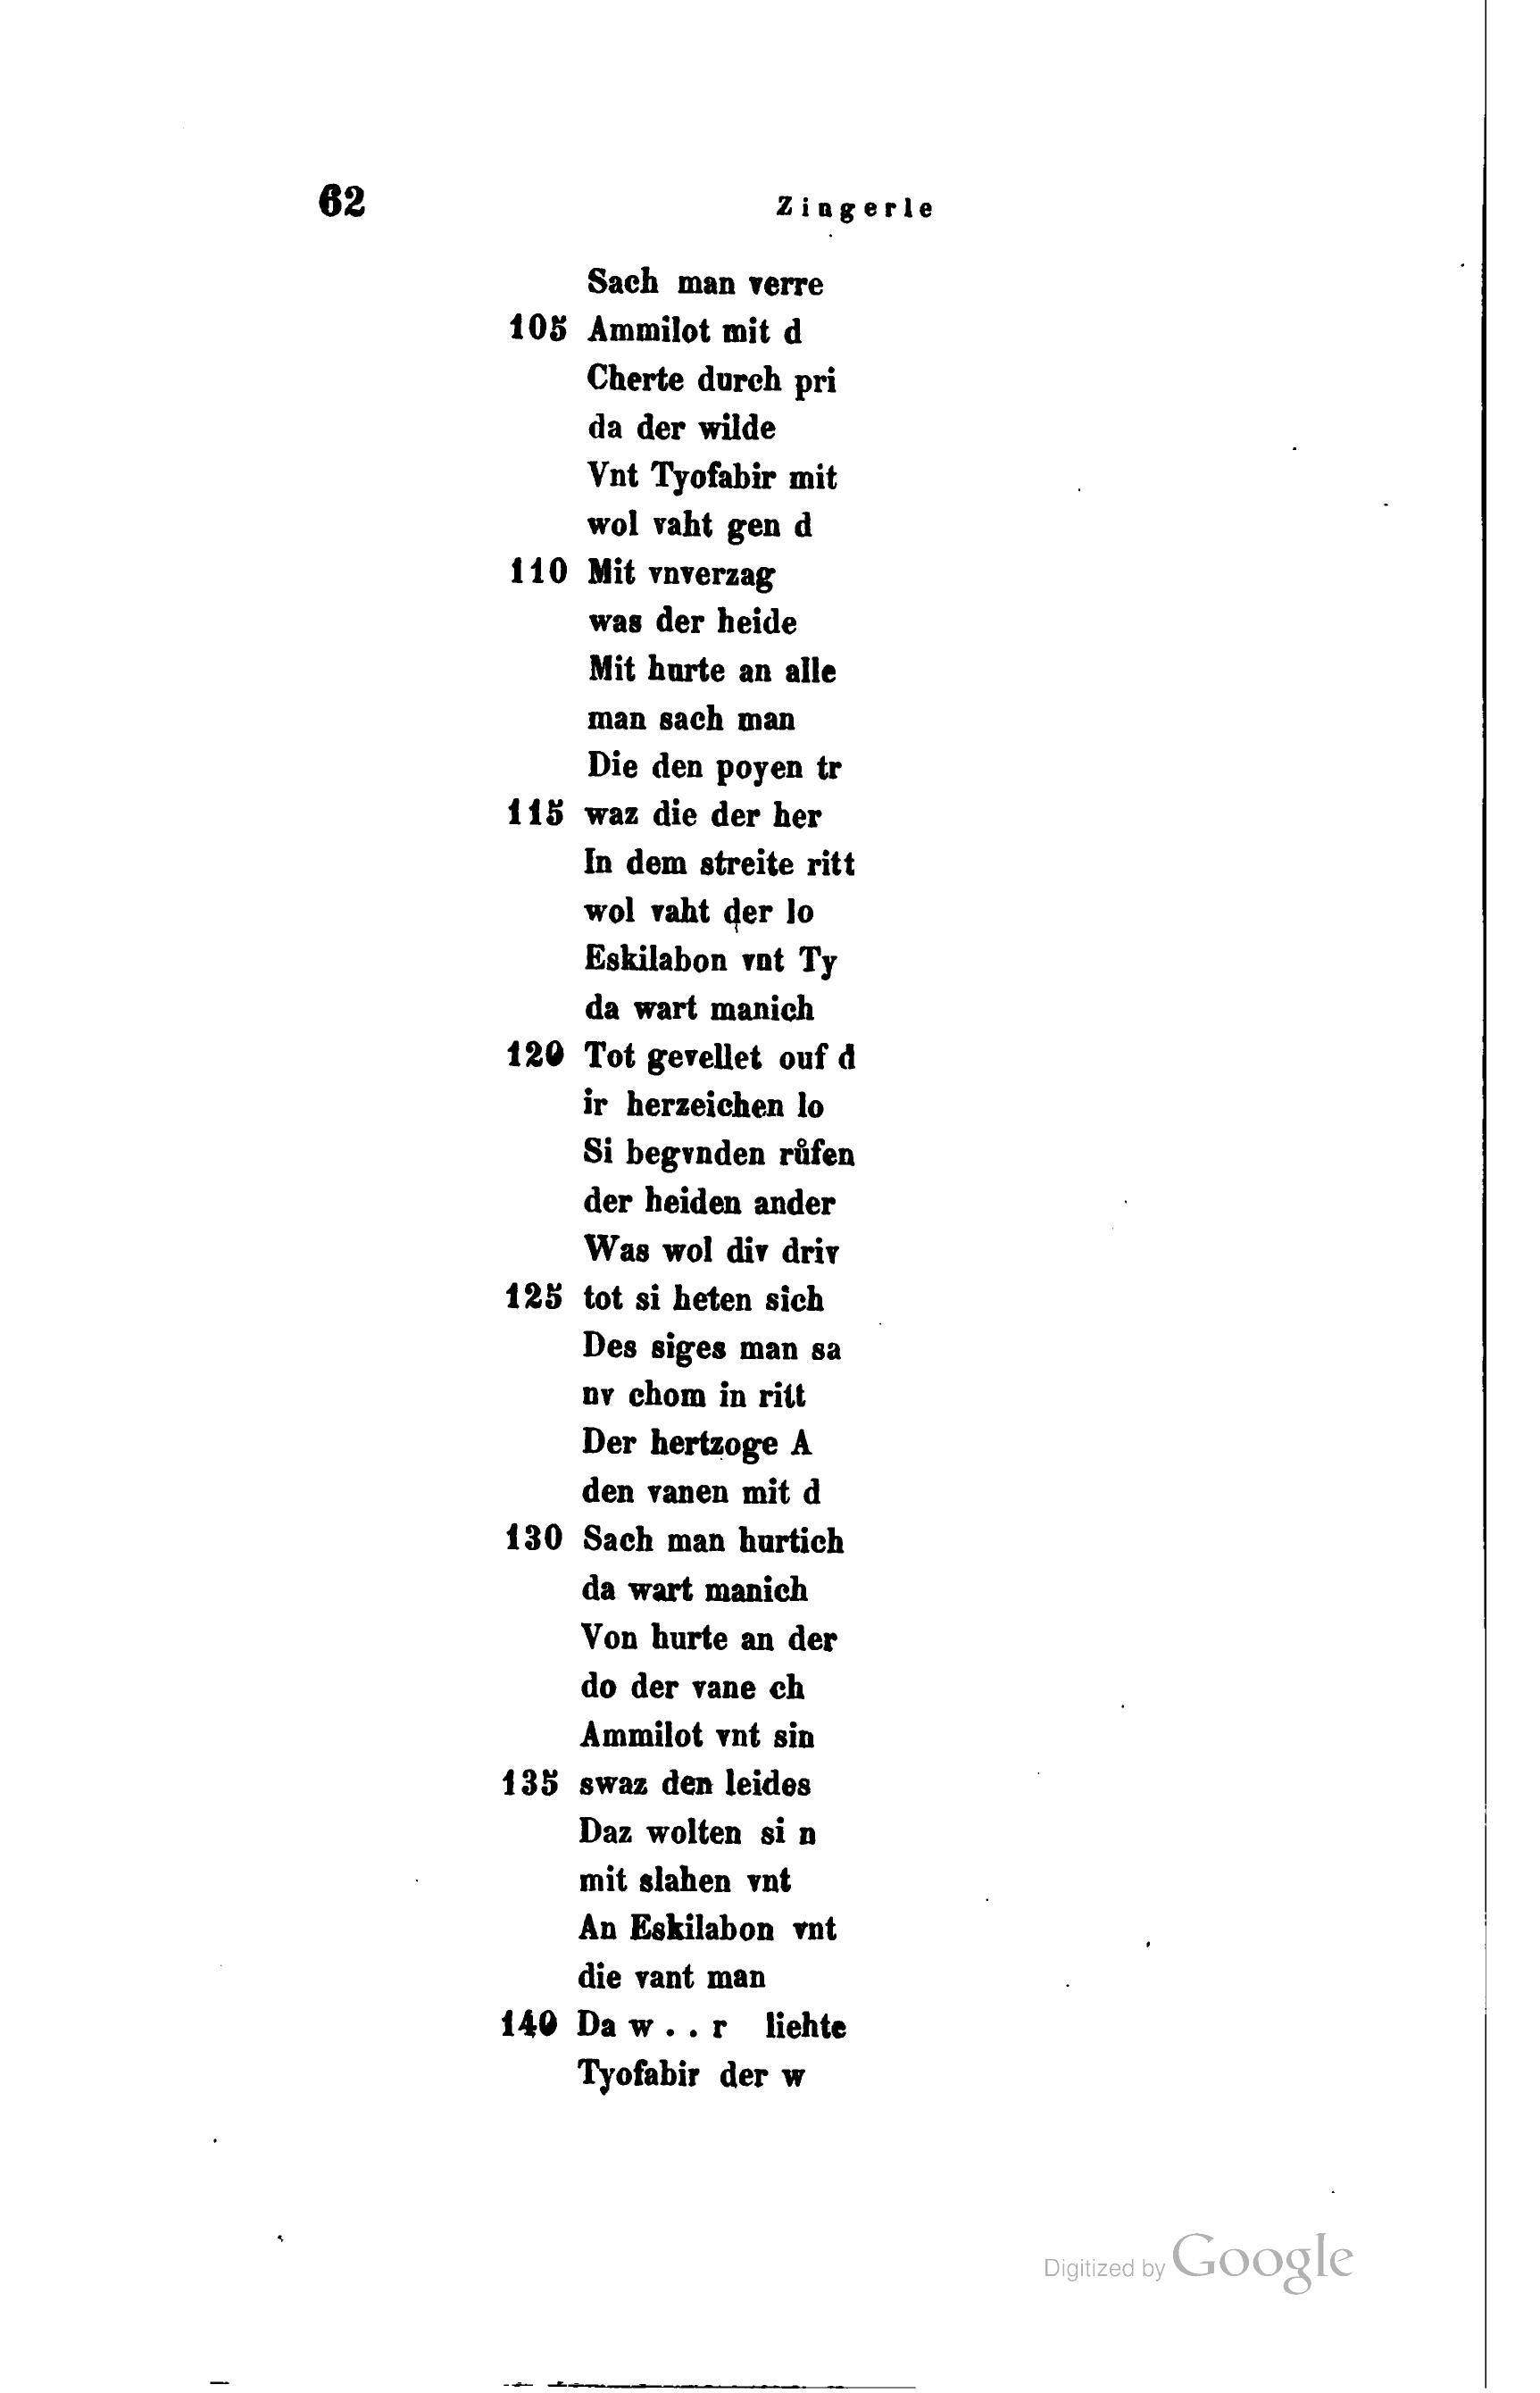 62 Zingerle
Sach man verre
105 Ammilot mit d
Cherte durch pri
da der wilde
Vnt Tyofabir mit
wol vaht gen d
110 Mit vnverzag
was der heide
Mit hurte an alle
man sach man
Die den poyen tr
115 waz die der her
In dem streite ritt
wol vaht der lo
Eskilabon vnt Ty
da wart manich
120 Tot gevellet ouf d
ir herzeichen lo
Si begvnden růfen
der heiden ander
Was wol div driv
125 tot si heten sich
Des siges man sa
nv chom in ritt
Der hertzoge A
den vanen mit d
130 Sach man hurtich
da wart manich
Von hurte an der
do der vane ch
Ammilot vnt sin
135 swaz den leides
Daz wolten si n
mit slahen vnt
An Eskilabon vnt
die vant man
140 Da w . . r liehte
Tyofabir der w
Digitized by Google